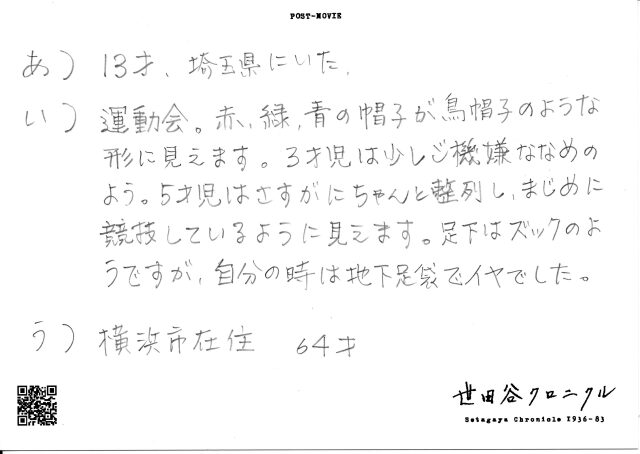 POST-MOVIE
あ） 13才、埼玉県にいた。
い） 運動会。赤、緑、青の帽子が烏帽子のような
形に見えます。3才児は少しご機嫌ななめの
よう。5才児はさすがにちゃんと整列し、まじめに
競技しているように見えます。足下はズックのよ
うですが、自分の時は地下足袋でイヤでした。
う） 横浜市在住 64才
世田谷クロニクル
Setagaya Chronicle 1936-83